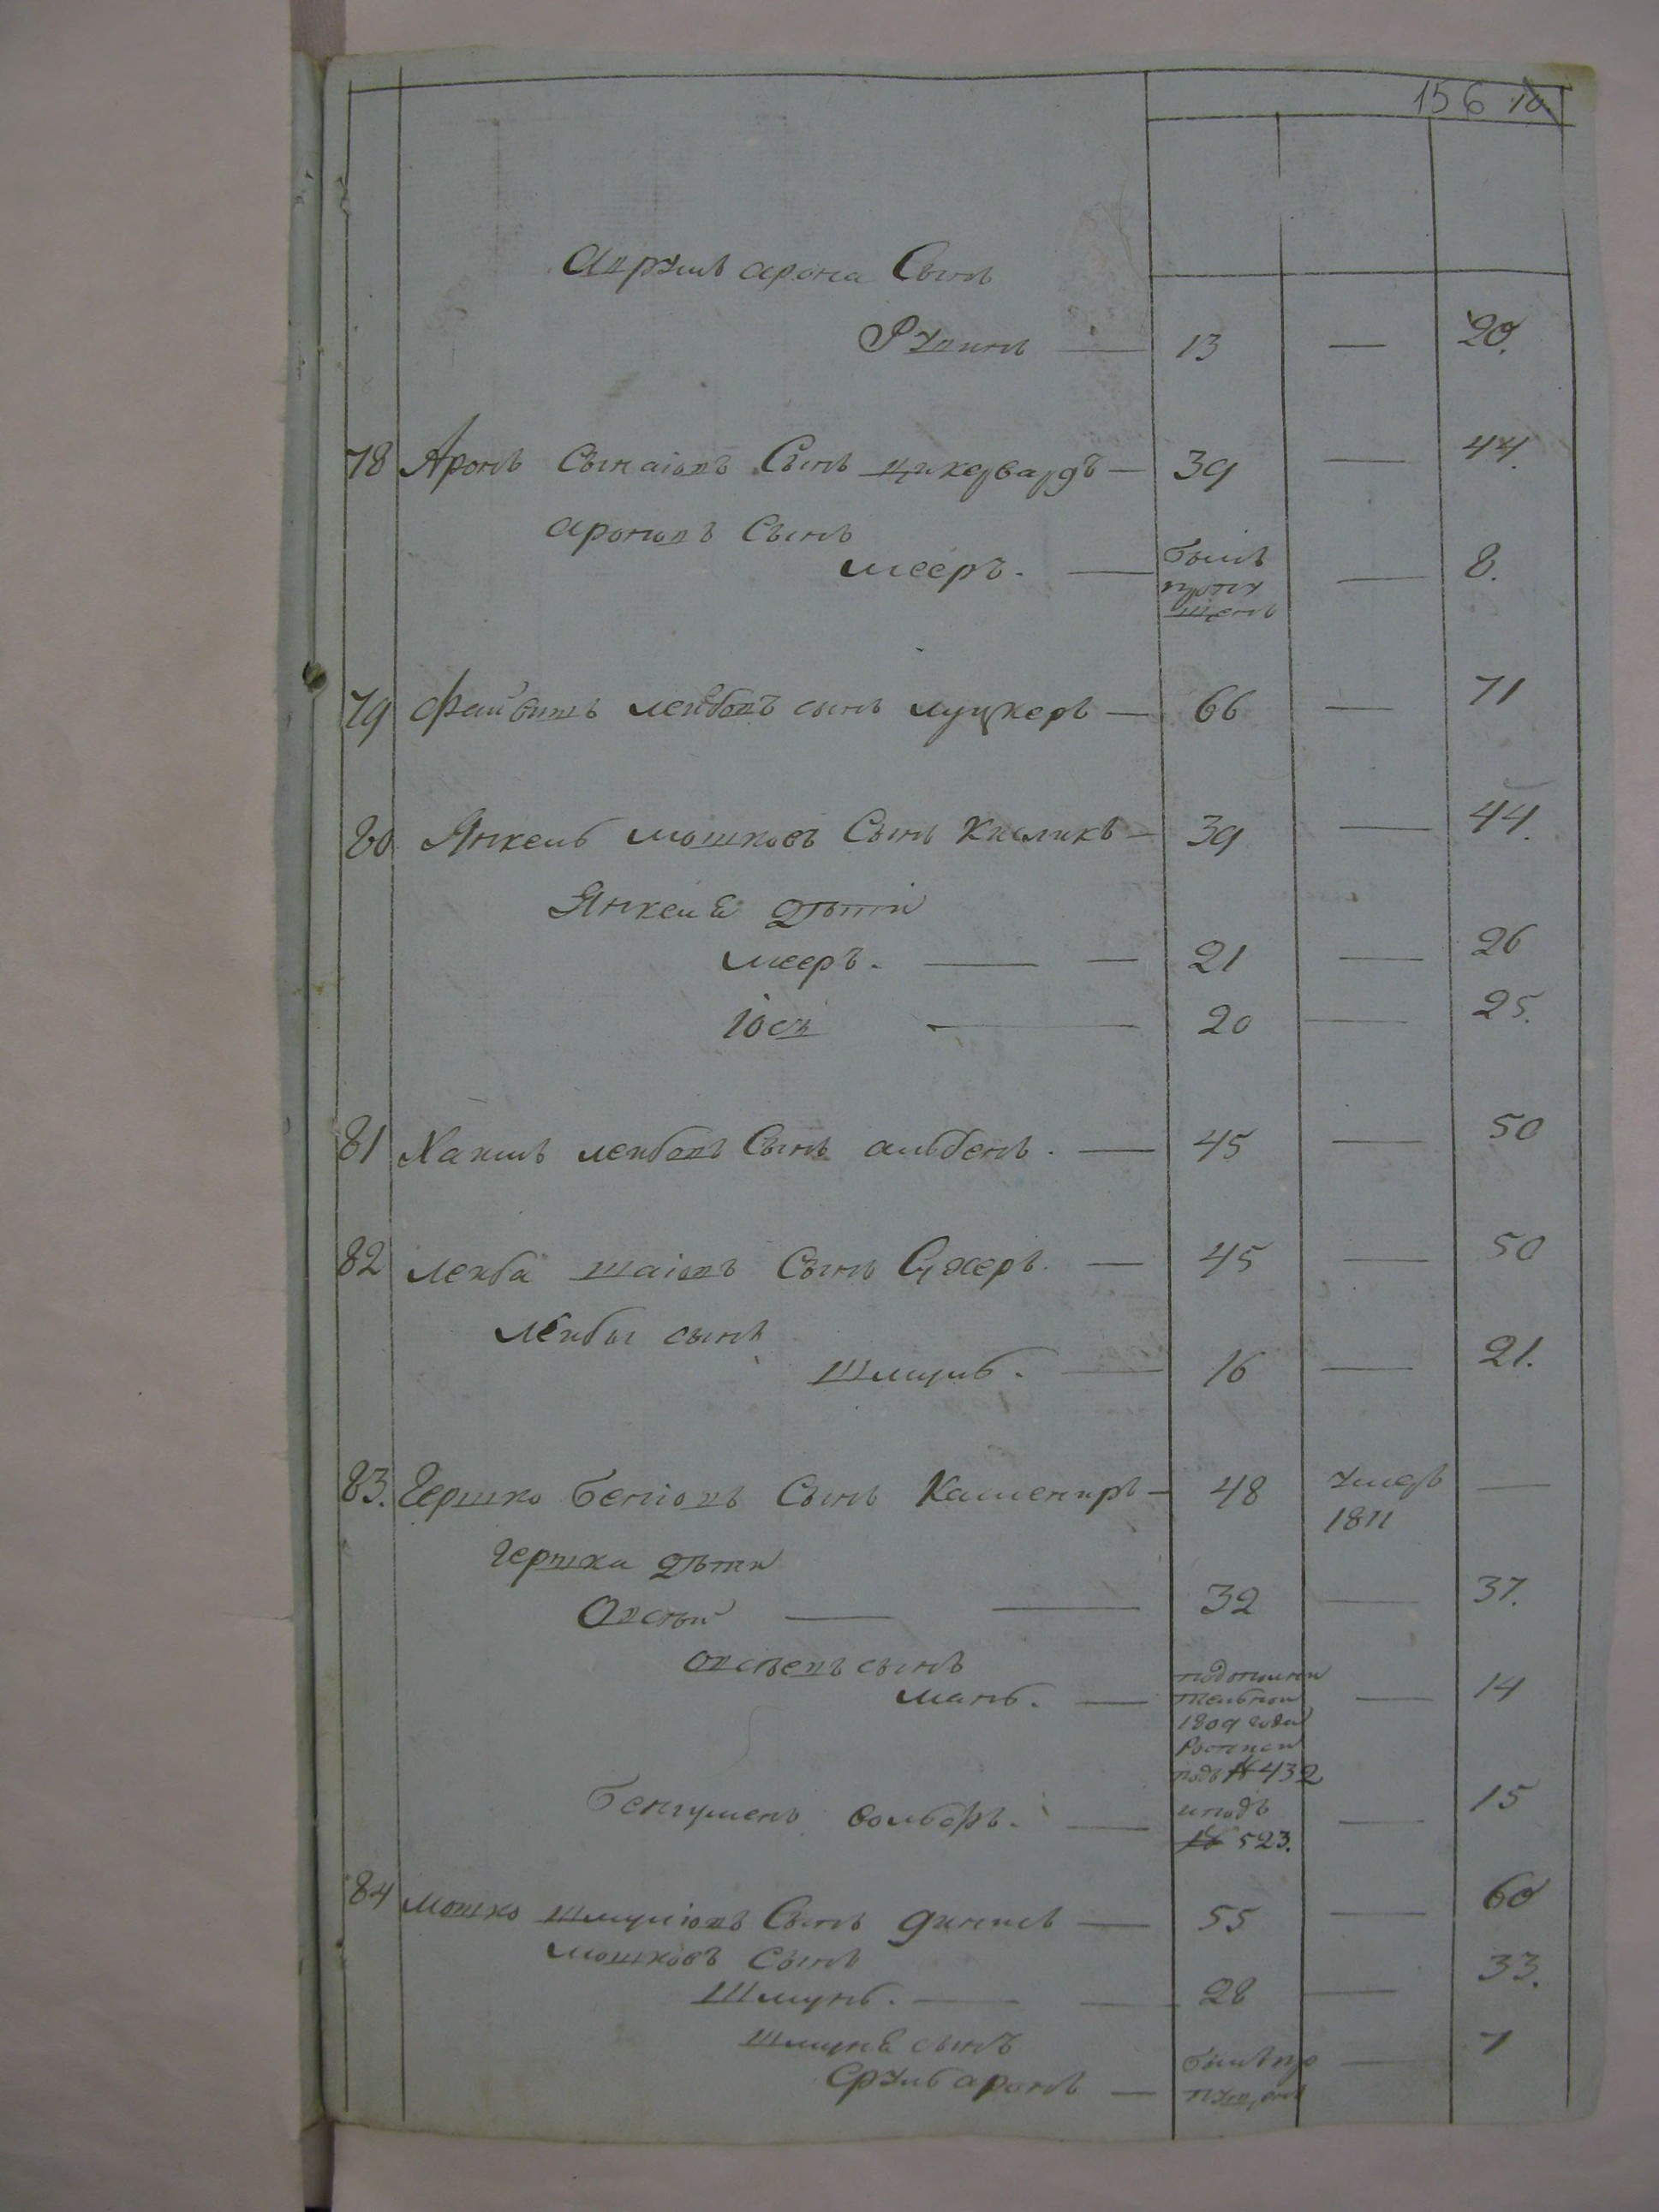 156
арона Сынъ
Рувинъ — 13 — 20.
78 Аронъ Сынъ — 39 — 44.
ароновъ Сынъ
мееръ. — былъ пропущенъ — 8.
79 Файвишъ лейбовъ сынъ луцкеръ — 66 — 71
80 Янкель мошковъ Сынъ Кисликъ — 39 — 44.
Янкеля дѣти
мееръ. — — 21 — 26
Іось — — 20 — 25.
81 Хаимъ лейбовъ Сынъ — 45 — 50
82 лейба шаіовъ Сынъ — 45 — 50
лейбы сынъ
Шмуль. — 16 — 21.
83. Гершко беніовъ Сынъ Камениръ — 48 умеръ 1811 —
гершка дѣти
Овсѣй — — 32 — 37.
овсѣевъ сынъ
мань. — подополнительной 1809 года Росписи подъ № 432 — 14
вольфъ. — иподъ № 523. — 15
84 мошко шмуліовъ Сынъ — 55 — 60
мошковъ Сынъ
Шмуль. — — 28 — 33.
шмуля сынъ
Сруль аронъ — былъ пропущенъ — 7